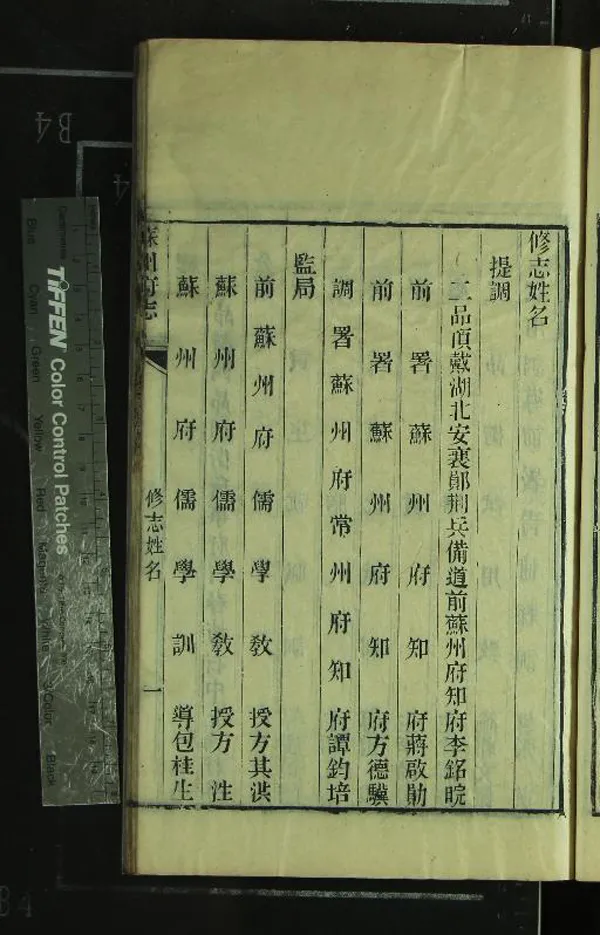 修志姓名
提調
二品頂戴湖北安襄鄖荆兵備道前蘇州府知府李銘皖
前署蘇州府知府蔣啟勛
前署蘇州府知府方德驥
調署蘇州府常州府知府譚鈞培
監局
前蘇州府儒學教授方其洪
蘇州府儒學教授方性
蘇州府儒學訓導包桂生
蘇州府志
修志姓名
一
B4
4
TIFFEN Color Control Patches
Blue
Cyan
Green
Yellow
Red
Magenta
White
3/Color
Black
B4